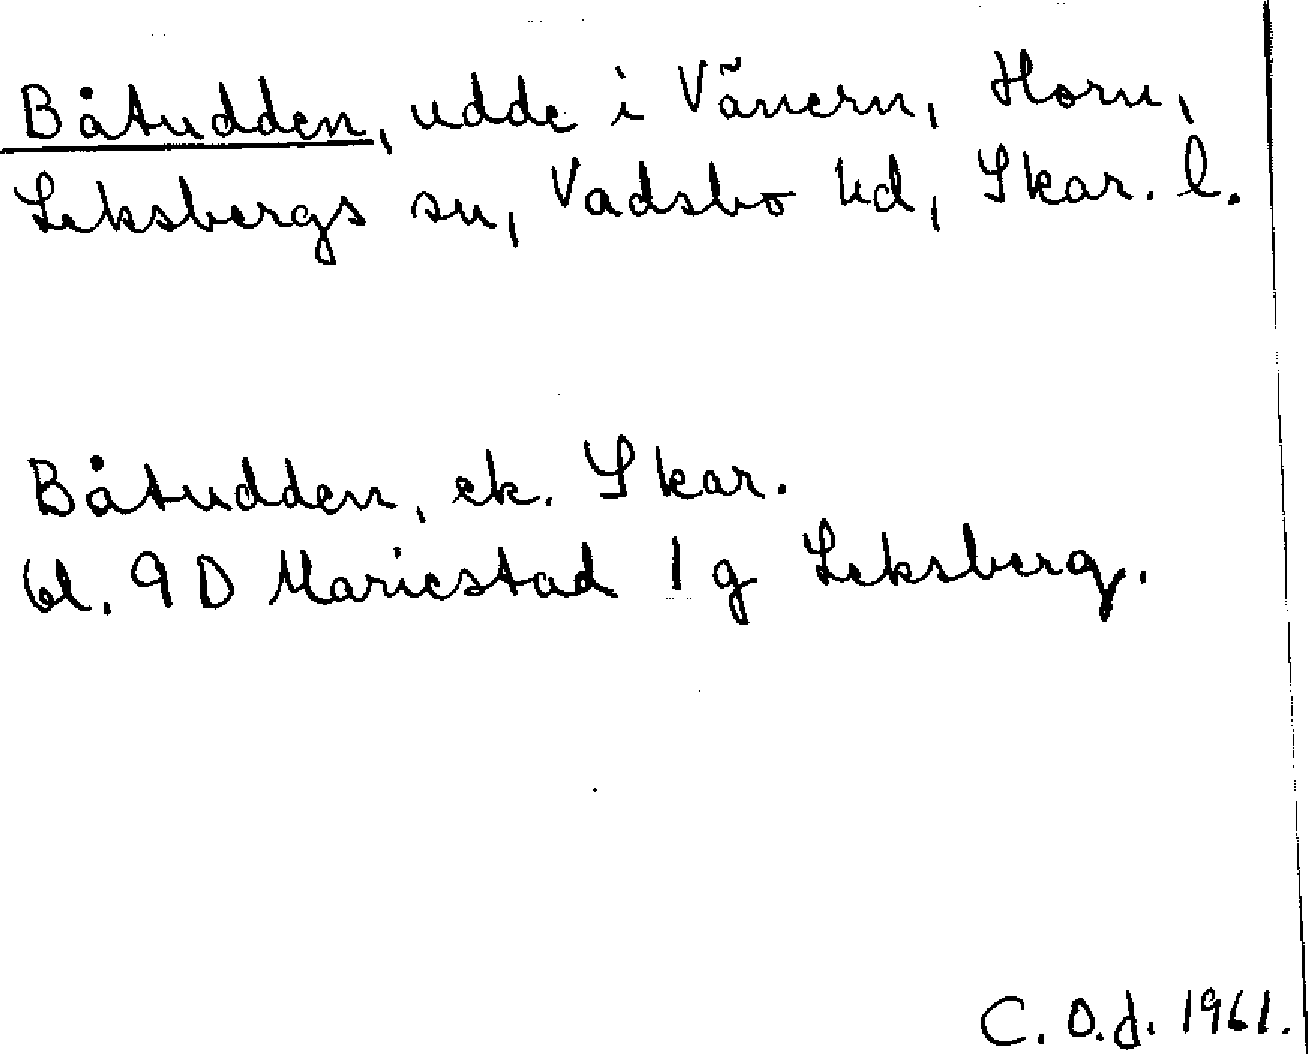 Båtudden, udde i Vänern, Horn,
Leksbergs sn, Vadsbo hd, Skar. l.
Båtudden, ek. Skar.
bl. 9D Mariestad 1 g Leksberg.
C. O. J. 1961.